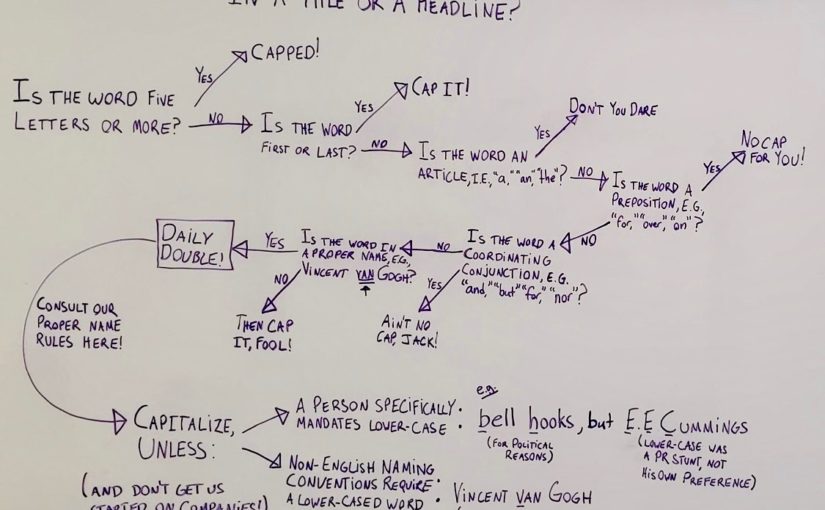 IN A TITLE OR A HEADLINE?
YES
CAPPED!
IS THE WORD FIVE
LETTERS OR MORE?
NO
IS THE WORD
FIRST OR LAST?
YES
CAP IT!
NO
IS THE WORD AN
ARTICLE, I.E., "a," "an," "the"?
YES
DON'T YOU DARE
NO
IS THE WORD A
PREPOSITION, E.G.,
"for," "over," "on"?
YES
NO CAP
FOR YOU!
NO
IS THE WORD A
COORDINATING
CONJUNCTION, E.G.
"and," "but" "for," "nor"?
YES
AIN'T NO
CAP, JACK!
NO
IS THE WORD IN
A PROPER NAME, E.G.,
VINCENT VAN GOGH?
NO
THEN CAP
IT, FOOL!
YES
DAILY
DOUBLE!
CONSULT OUR
PROPER NAME
RULES HERE!
CAPITALIZE,
UNLESS:
A PERSON SPECIFICALLY
MANDATES LOWER-CASE
e.g.
bell hooks, but E.E CUMMINGS
(FOR POLITICAL
REASONS)
(LOWER-CASE WAS
A PR STUNT, NOT
HIS OWN PREFERENCE)
NON-ENGLISH NAMING
CONVENTIONS REQUIRE
A LOWER-CASED WORD
VINCENT VAN GOGH
(AND DON'T GET US
STARTED ON COMPANIES!)